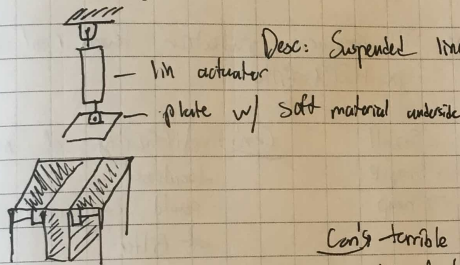 Desc: Suspended lin
lin actuator
plate w/ soft material underside
Con's terrible